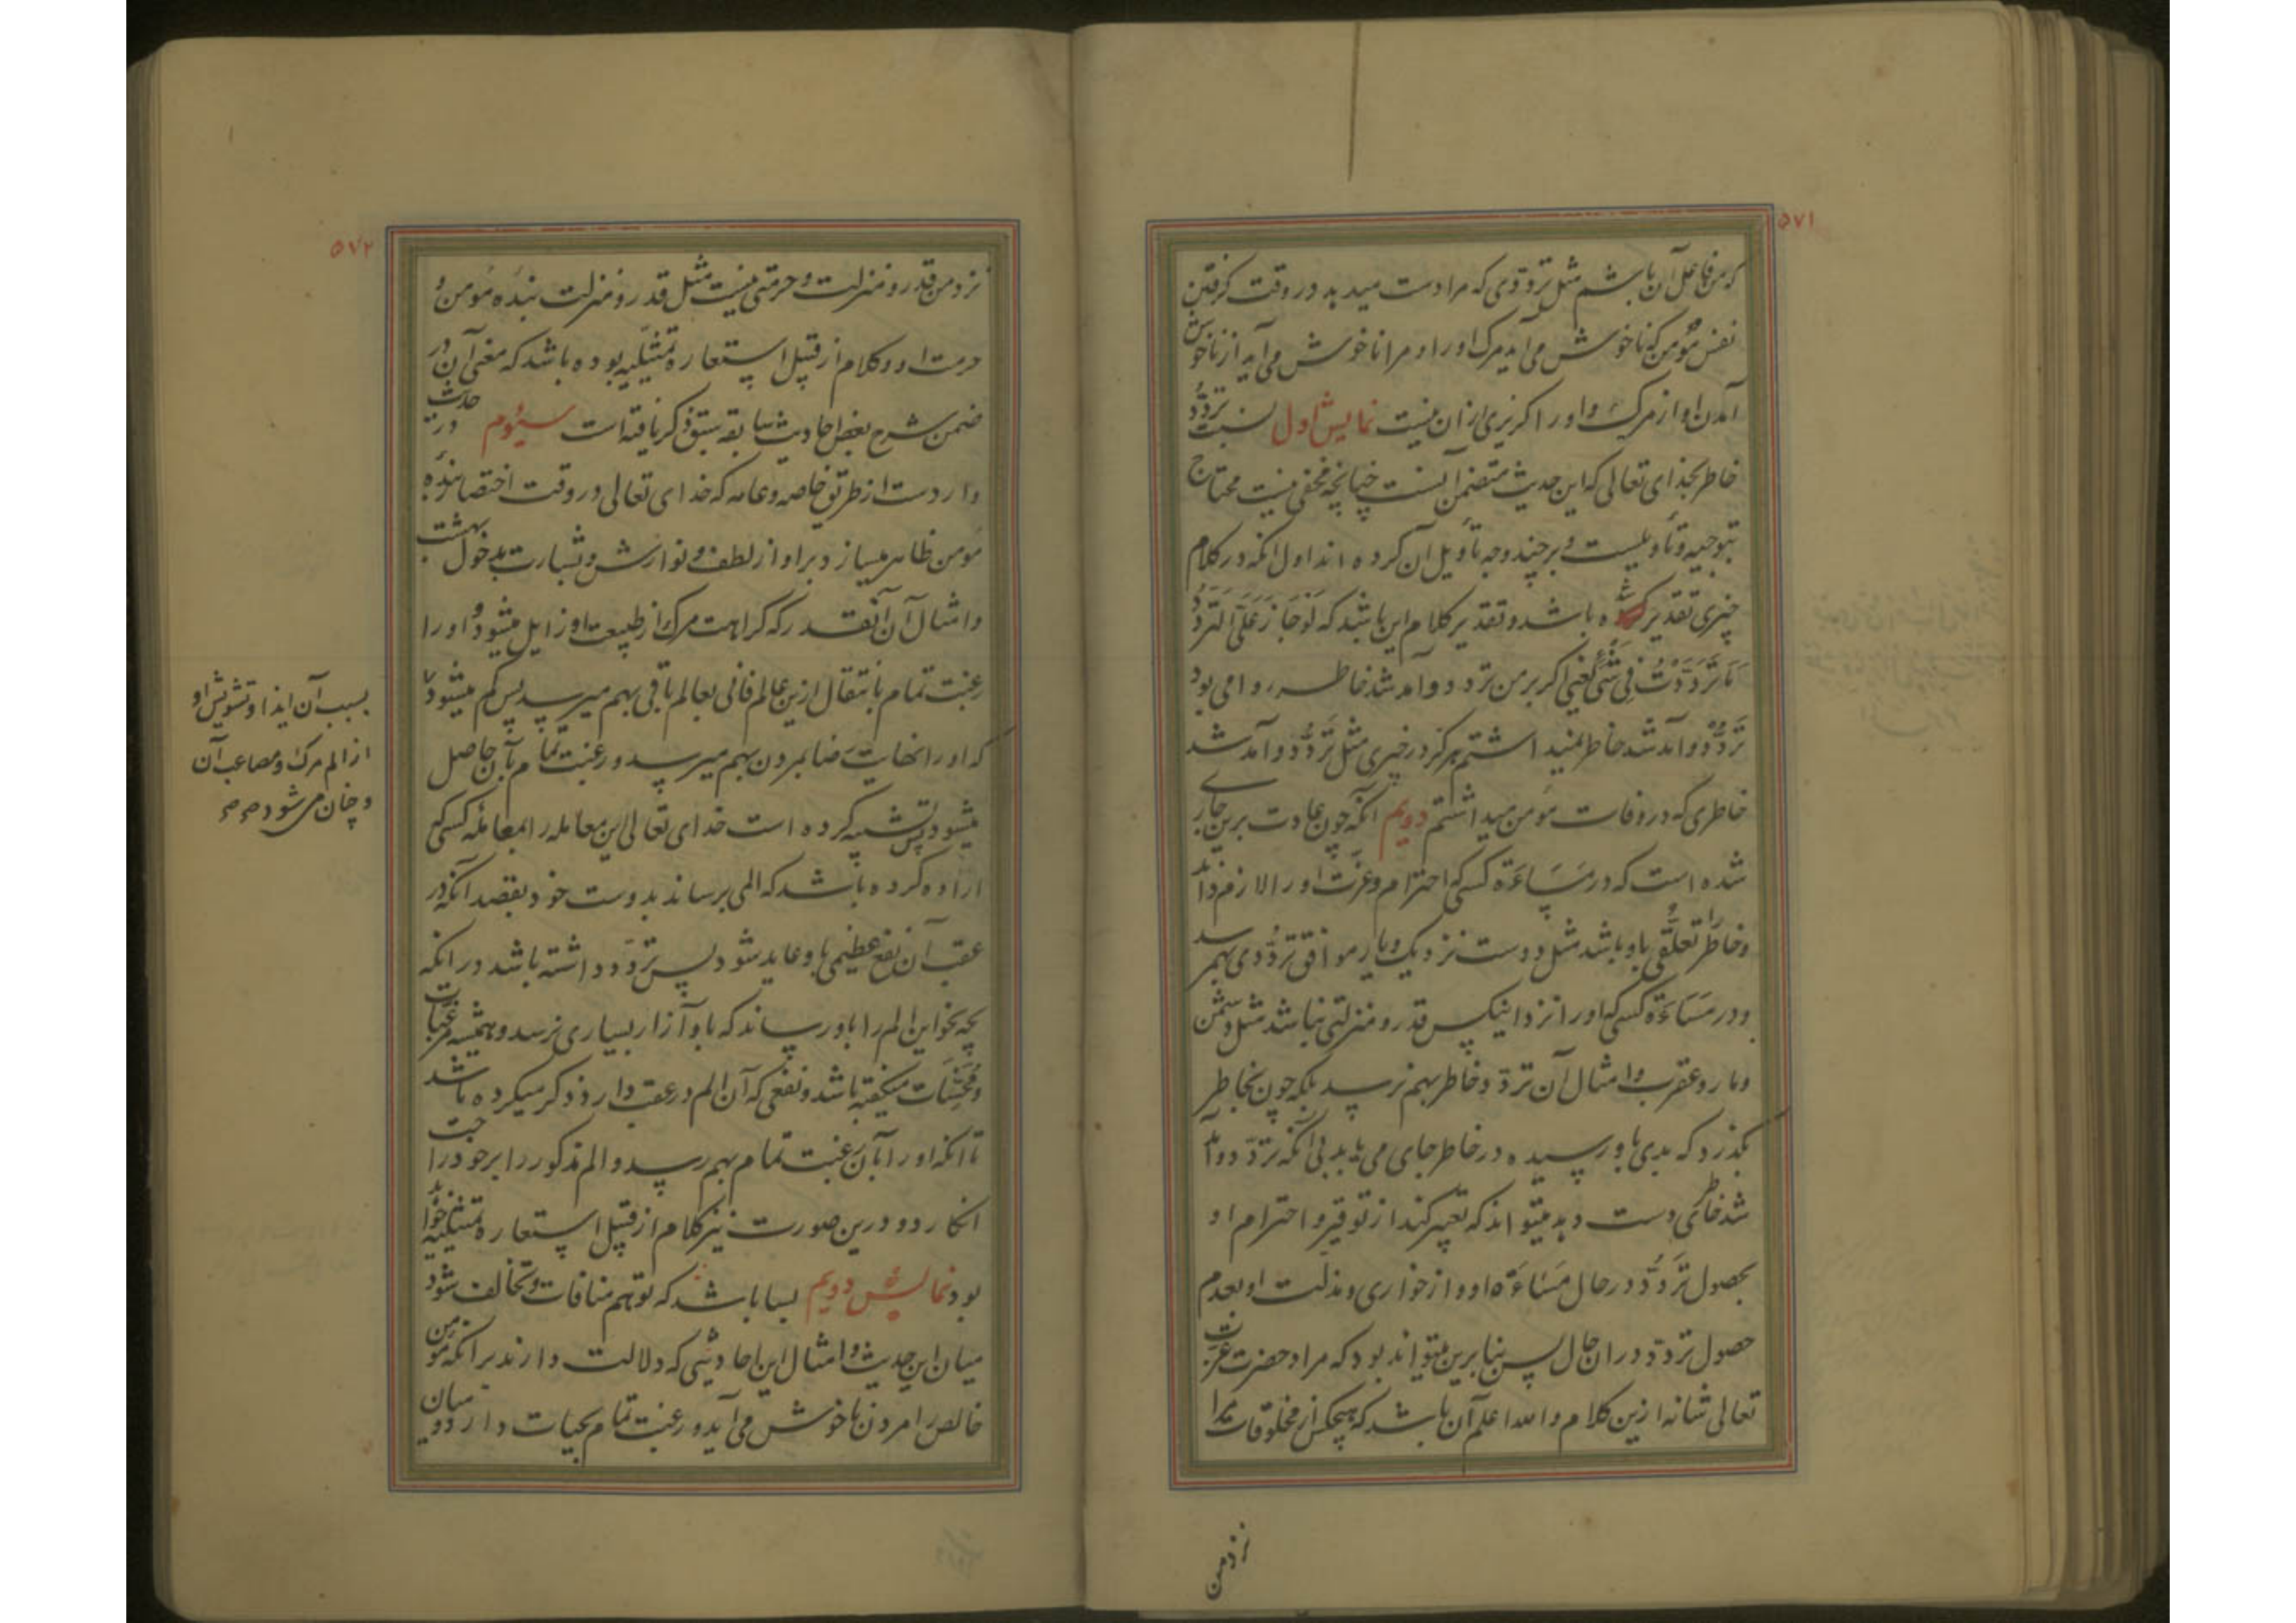 ۵۷۱
که من فاعل آن باشم مثل ترددی که مرا دست میدهد در وقت گرفتن
نفس مؤمن که ناخوش می آید مرگ او را و مرا ناخوش می آید از ناخوش
آمدن او از مرگ و او را گریزی از آن نیست نمایش اول نسبت تردّد
خاطر بخدای تعالی که این حدیث متضمن آنست چنانچه مخفی نیست محتاج
بتوجیه و تأویلست و بر چند وجه تأویل آن کرده اند اول انکه در کلام
چیزی تقدیر شده باشد و تقدیر کلام این باشد که لَوْ جَازَ عَلَیَّ التَّرَدُّدُ
مَا تَرَدَّدْتُ فِی شَیْءٍ یعنی اگر بر من تردد و آمد شد خاطر روا می بود
تَرَدُّدْ و آمد شد خاطر نمیداشتم هرگز در چیزی مثل تَرَدُّد و آمد شد
خاطری که در وفات مؤمن میداشتم دویم آنکه چون عادت برین جاری
شده است که در مَسَاءَة کسی که احترام و عزت او را لازم داند
و خاطر را تعلّقی باو باشد مثل دوست نزدیک و یار موافق تردُّدی بهم رسد
و در مَسَاءَة کسی که او را نزد اینکس قدر و منزلتی نباشد مثل دشمن
و مار و عقرب و امثال آن تردّد خاطر بهم نرسد بلکه چون بخاطر
بگذرد که بدی باو رسیده در خاطر جای می یابد بی آنکه تردّد و آمد
شد خاطری دست دهد میتواند که تعبیر کند از توقیر و احترام او
بحصول تَرَدُّد در حال مَسَاءَة او و از خواری و مذلت او بعدم
حصول تردّد در ان حال پس بنابرین میتواند بود که مراد حضرت عزّت
تعالی شانه ازین کلام والله اعلم آن باشد که هیچکس از مخلوقات مرا
نزد من
۵۷۲
نزد من قدر و منزلت و حرمتی نیست مثل قدر و منزلت بنده مؤمن و
حرمت او و کلام از قبیل استعاره تمثیلیه بوده باشد که معنی آن در
ضمن شرح بعض احادیث سابقه سبق ذکر یافته است سیّوم در حدیث
واردست از طریق خاصه و عامه که خدای تعالی در وقت احتضار بنده
مؤمن ظاهر میسازد برو از لطف و نوازش و بشارت بدخول بهشت
و امثال آن آنقدر که کراهت مرگ از طبیعت او زایل میشود و او را
رغبت تمام بانتقال ازین عالم فانی بعالم باقی بهم میرسد پس کم میشود
که او را نهایت رضا بمردن بهم میرسد و رغبت تمام بآن حاصل
میشود پس تشبیه کرده است خدای تعالی این معامله را بمعامله کسی که
اراده کرده باشد که المی برساند بدوست خود بقصد آنکه در
عقب آن نفع عظیمی باو عاید شود پس تردّد داشته باشد در انکه
بچه نحو این الم را باو رساند که باو آزار بسیاری نرسد و همیشه مرغّبات
و محسّنات میگفته باشد و نفعی که آن الم در عقب دارد ذکر میکرده باشد
تا انکه او را بآن رغبت تمام بهم رسد و الم مذکور را بر خود راحت
انگارد و درین صورت نیز کلام از قبیل استعاره تمثیلیه خواهد
بود نمایش دویم بسا باشد که توهم منافات و تخالف شود
میان این حدیث و امثال این احادیثی که دلالت دارند بر انکه مؤمن
خالص را مردن ناخوش می آید و رغبت تمام بحیات دارد و میان
بسبب آن ایذا و تشویش او
از الم مرگ و مصاعب آن
و چنان می شود